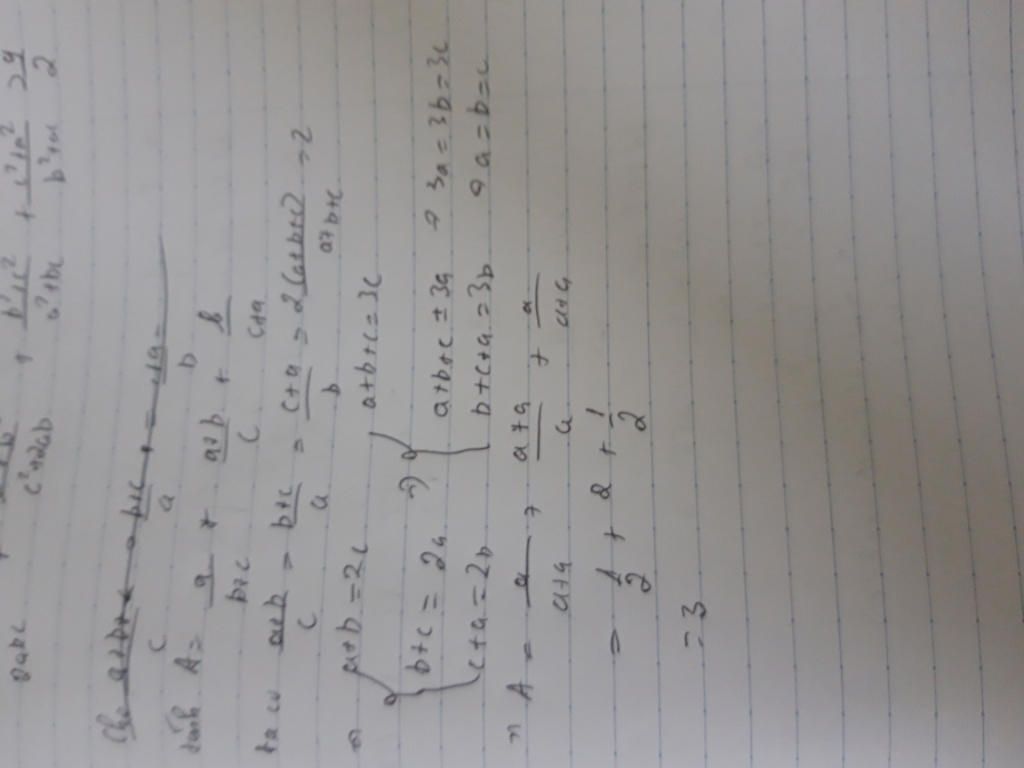 b²+c²/a²+bc + c²+a²/b²+ac ≥ 9/2
2abc c²+2ab
Cho a+b/c = b+c/a = c+a/b
tính A = a/b+c + a+b/c + b/c+a
ta có a+b/c = b+c/a = c+a/b = 2(a+b+c)/a+b+c = 2
⇒ { a+b=2c
b+c = 2a
c+a=2b
⇒ { a+b+c=3c
a+b+c = 3a
b+c+a=3b
⇒ 3a=3b=3c
⇒ a=b=c
⇒ A = a/a+a + a+a/a + a/a+a
= 1/2 + 2 + 1/2
= 3